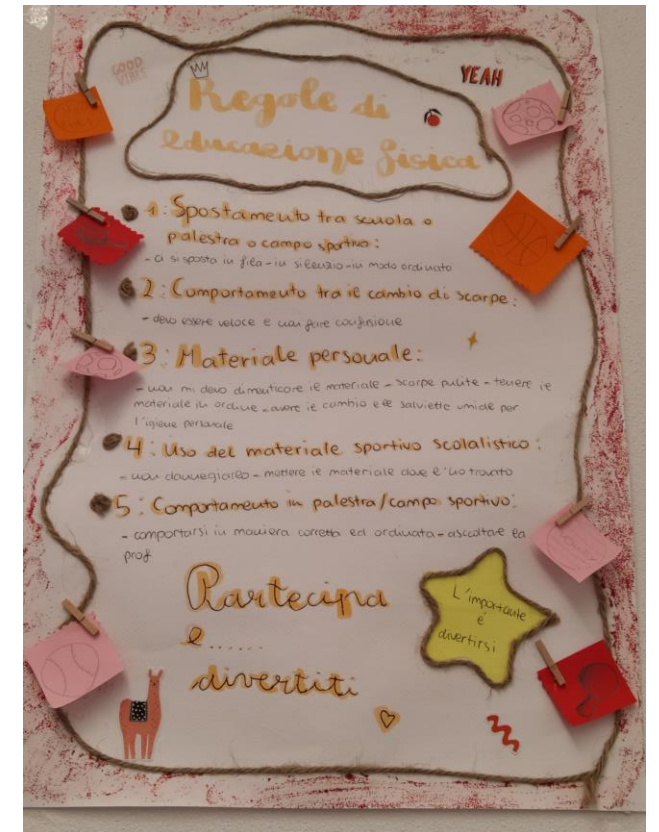 GOOD
VIBES
YEAH
Regole di
educazione fisica
1: Spostamento tra scuola o
palestra o campo sportivo:
- ci si sposta in fila - in silenzio - in modo ordinato
2: Comportamento tra il cambio di scarpe:
- devo essere veloce e non fare confusione
3: Materiale personale:
- non mi devo dimenticare il materiale - scarpe pulite - tenere il
materiale in ordine - avere il cambio e le salviette umide per
l'igiene personale
4: Uso del materiale sportivo scolalistico:
- non danneggiarlo - mettere il materiale dove l'ho trovato
5: Comportamento in palestra/campo sportivo:
- comportarsi in maniera corretta ed ordinata - ascoltare la
prof
Partecipa
e......
divertiti
L'importante
é
divertirsi